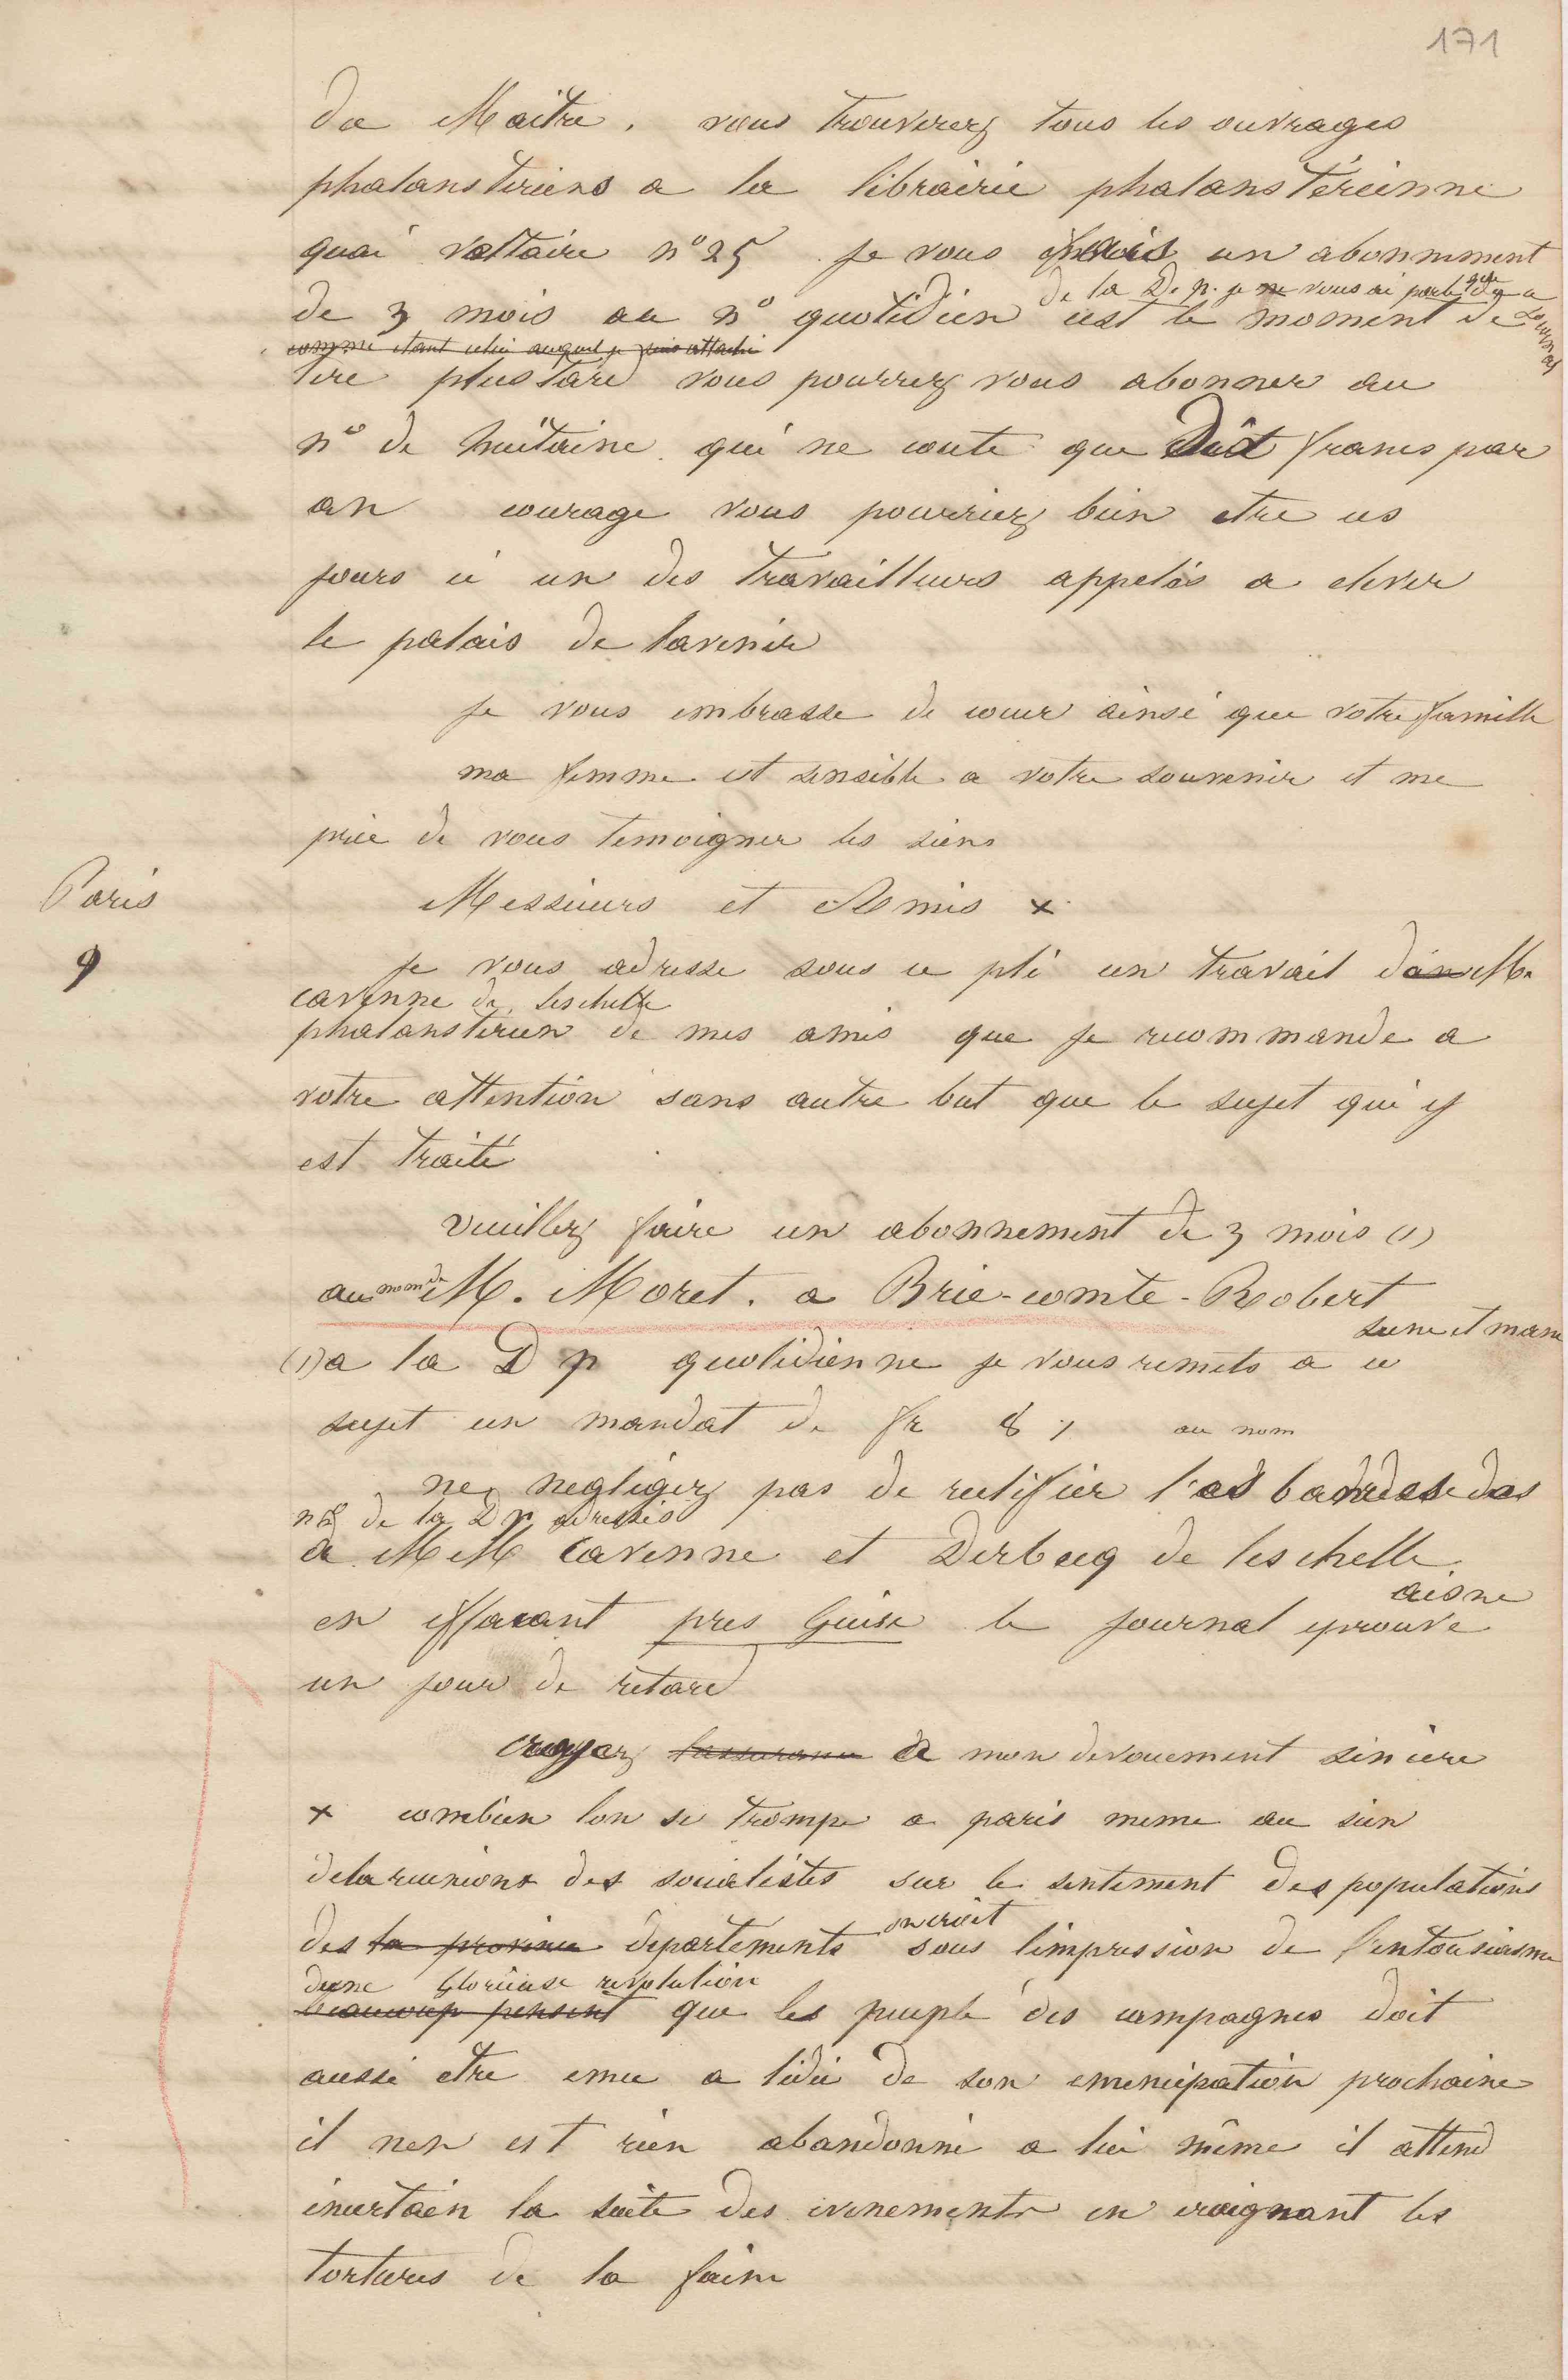 171
du Maitre. vous trouverez tous les ouvrages
phalansteriens a la librairie phalansterienne
quai voltaire n° 25 je vous fais un abonnment
de la D. p. je ne vous ai parlé que deja
de 3 mois au n° quotidien cest le moment de
Journal
comme etant celui auquel je suis attaché
lire plus tard vous pourrez vous abonner au
n° de huitaine qui ne coute que dix francs par
an courage vous pourriez bien etre ces
jours ci un des travailleurs appelés a elever
le palais de lavenir
je vous embrasse de coeur ainsi que votre famille
ma femme est sensible a votre souvenir et me
prie de vous temoigner les siens
Paris
Messieurs et Amis x
9
je vous adresse sous ce pli un travail d M.
cavenne de leschelle
phalansterien de mes amis que je recommande a
votre attention sans autre but que le sujet qui y
est traité
veuillez faire un abonnement de 3 mois (1)
au nom de M. Moret. a Brie-comte-Robert
seine et marne
(1) a la D p quotidienne je vous remets a ce
sujet un mandat de fr 8 % au nom
ne negligez pas de rectifier l'es bandes des
nos de la D p adressés
a MM Cavenne et Derbecq de leschelle
aisne
en effacant pres Guise le journal eprouve
un jour de retard
croyez lassurance a mon devouement sincere
x combien lon se trompe a paris meme au sein
de la reunions des socialistes sur le sentement des populations
on croit
des la province departements sous limpression de l'entousiasme
dune Glorieuse revolution
beaucoup pensent que les peuple des campagnes doit
aussi etre emu a lidée de son emencipation prochaine
il nen est rien abandonné a lui même il attend
incertain la suite des evenements en craignant les
tortures de la faim